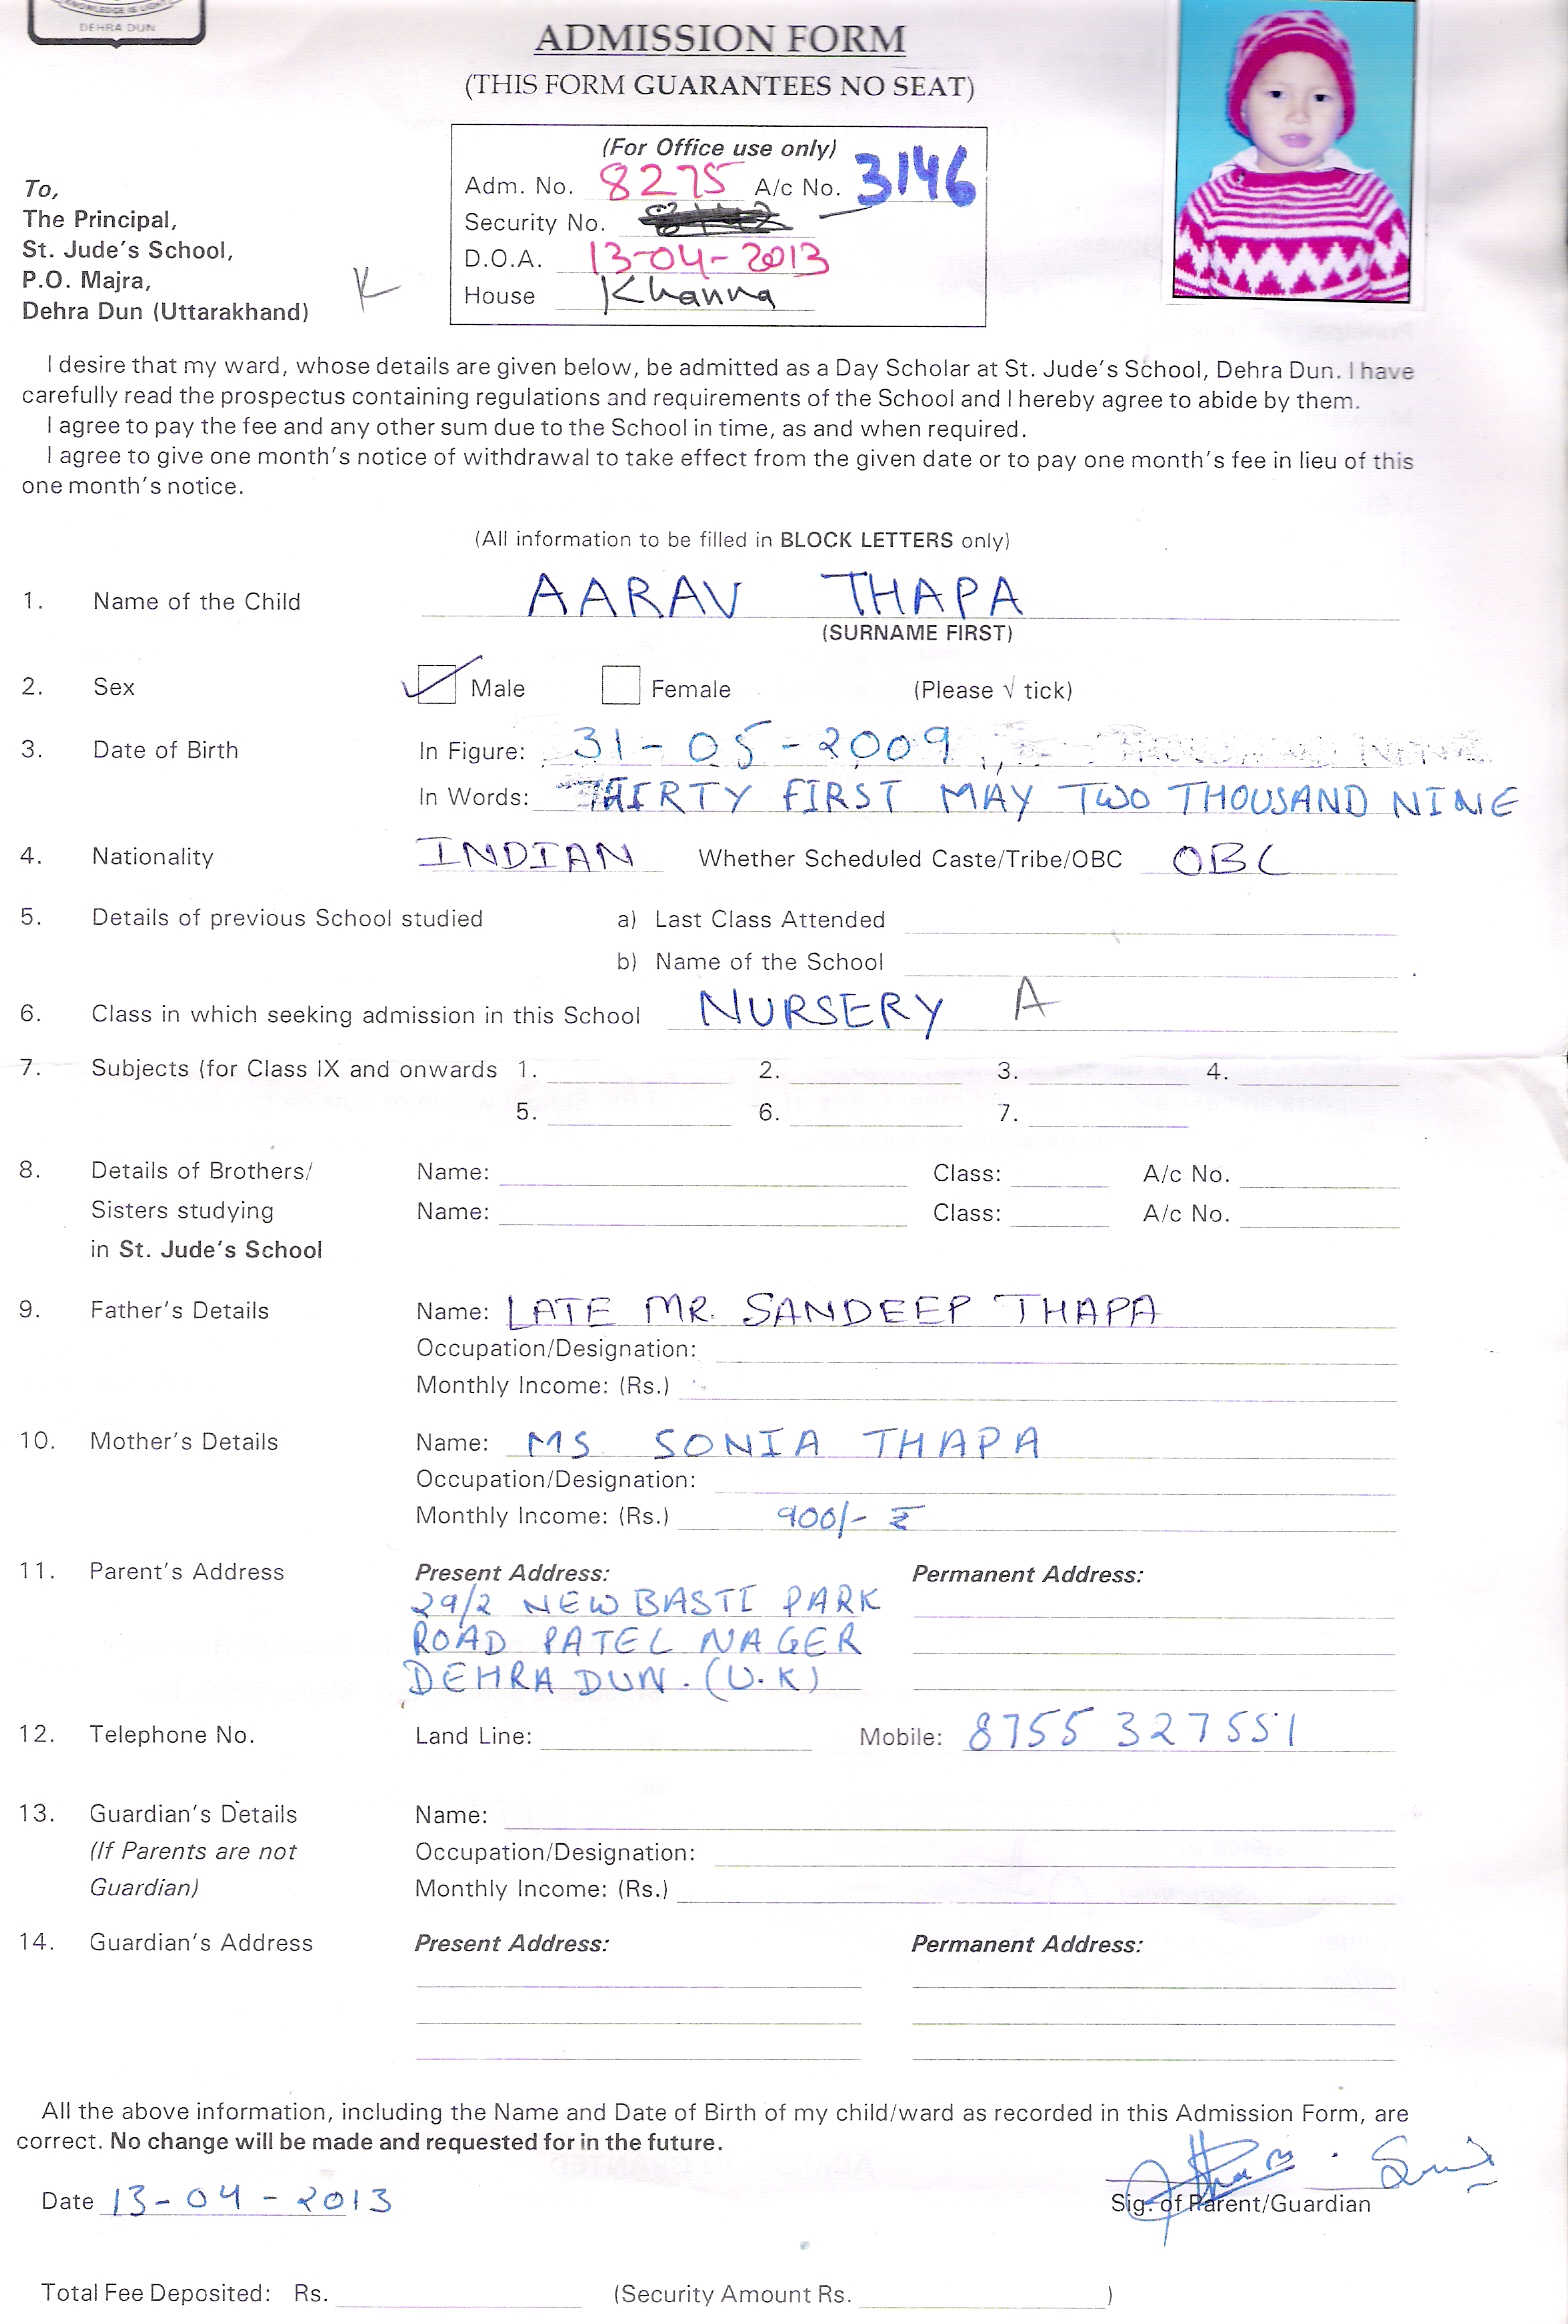 KNOWLEDGE IS LIGHT
DEHRA DUN
ADMISSION FORM
(THIS FORM GUARANTEES NO SEAT)
(For Office use only)
Adm. No. 8275 A/c No. 3146
Security No.
D.O.A. 13-04-2013
House Khanna
To,
The Principal,
St. Jude's School,
P.O. Majra,
Dehra Dun (Uttarakhand)
K
I desire that my ward, whose details are given below, be admitted as a Day Scholar at St. Jude's School, Dehra Dun. I have
carefully read the prospectus containing regulations and requirements of the School and I hereby agree to abide by them.
I agree to pay the fee and any other sum due to the School in time, as and when required.
I agree to give one month's notice of withdrawal to take effect from the given date or to pay one month's fee in lieu of this
one month's notice.
(All information to be filled in BLOCK LETTERS only)
1. Name of the Child AARAV THAPA
(SURNAME FIRST)
2. Sex Male Female (Please √ tick)
3. Date of Birth In Figure: 31-05-2009
In Words: THIRTY FIRST MAY TWO THOUSAND NINE
4. Nationality INDIAN Whether Scheduled Caste/Tribe/OBC OBC
5. Details of previous School studied a) Last Class Attended
b) Name of the School
6. Class in which seeking admission in this School NURSERY A
7. Subjects (for Class IX and onwards 1. 2. 3. 4.
5. 6. 7.
8. Details of Brothers/ Name: Class: A/c No.
Sisters studying Name: Class: A/c No.
in St. Jude's School
9. Father's Details Name: LATE MR. SANDEEP THAPA
Occupation/Designation:
Monthly Income: (Rs.)
10. Mother's Details Name: MS SONIA THAPA
Occupation/Designation:
Monthly Income: (Rs.) 900/- ₹
11. Parent's Address Present Address: Permanent Address:
29/2 NEW BASTI PARK
ROAD PATEL NAGER
DEHRA DUN. (U.K)
12. Telephone No. Land Line: Mobile: 8755 327551
13. Guardian's Details Name:
(If Parents are not Occupation/Designation:
Guardian) Monthly Income: (Rs.)
14. Guardian's Address Present Address: Permanent Address:
All the above information, including the Name and Date of Birth of my child/ward as recorded in this Admission Form, are
correct. No change will be made and requested for in the future.
Date 13-04-2013
Sig. of Parent/Guardian
Total Fee Deposited: Rs. (Security Amount Rs. )